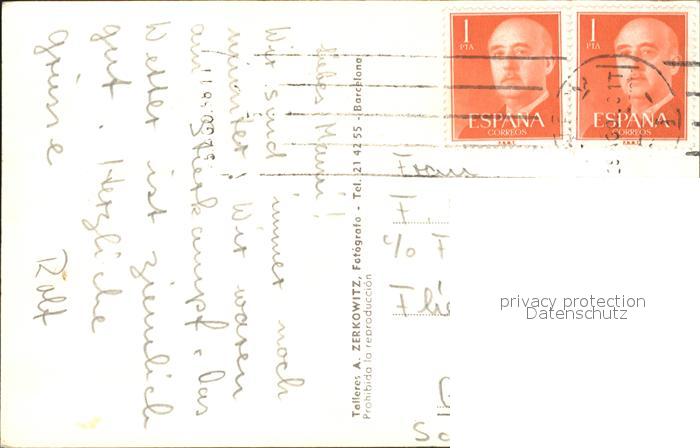 Liebes Mami!
Wir sind immer noch
munter! Wir waren
am Stierkampf. Das
Wetter ist ziemlich
gut. Herzliche
Grüsse Rolf
Talleres A. ZERKOWITZ, Fotógrafo - Tel. 21 42 55 - Barcelona
Prohibida la reproducción
1
PTA
ESPAÑA
CORREOS
1
PTA
ESPAÑA
CORREOS
Frau
F.
c/o F
privacy protection
Datenschutz